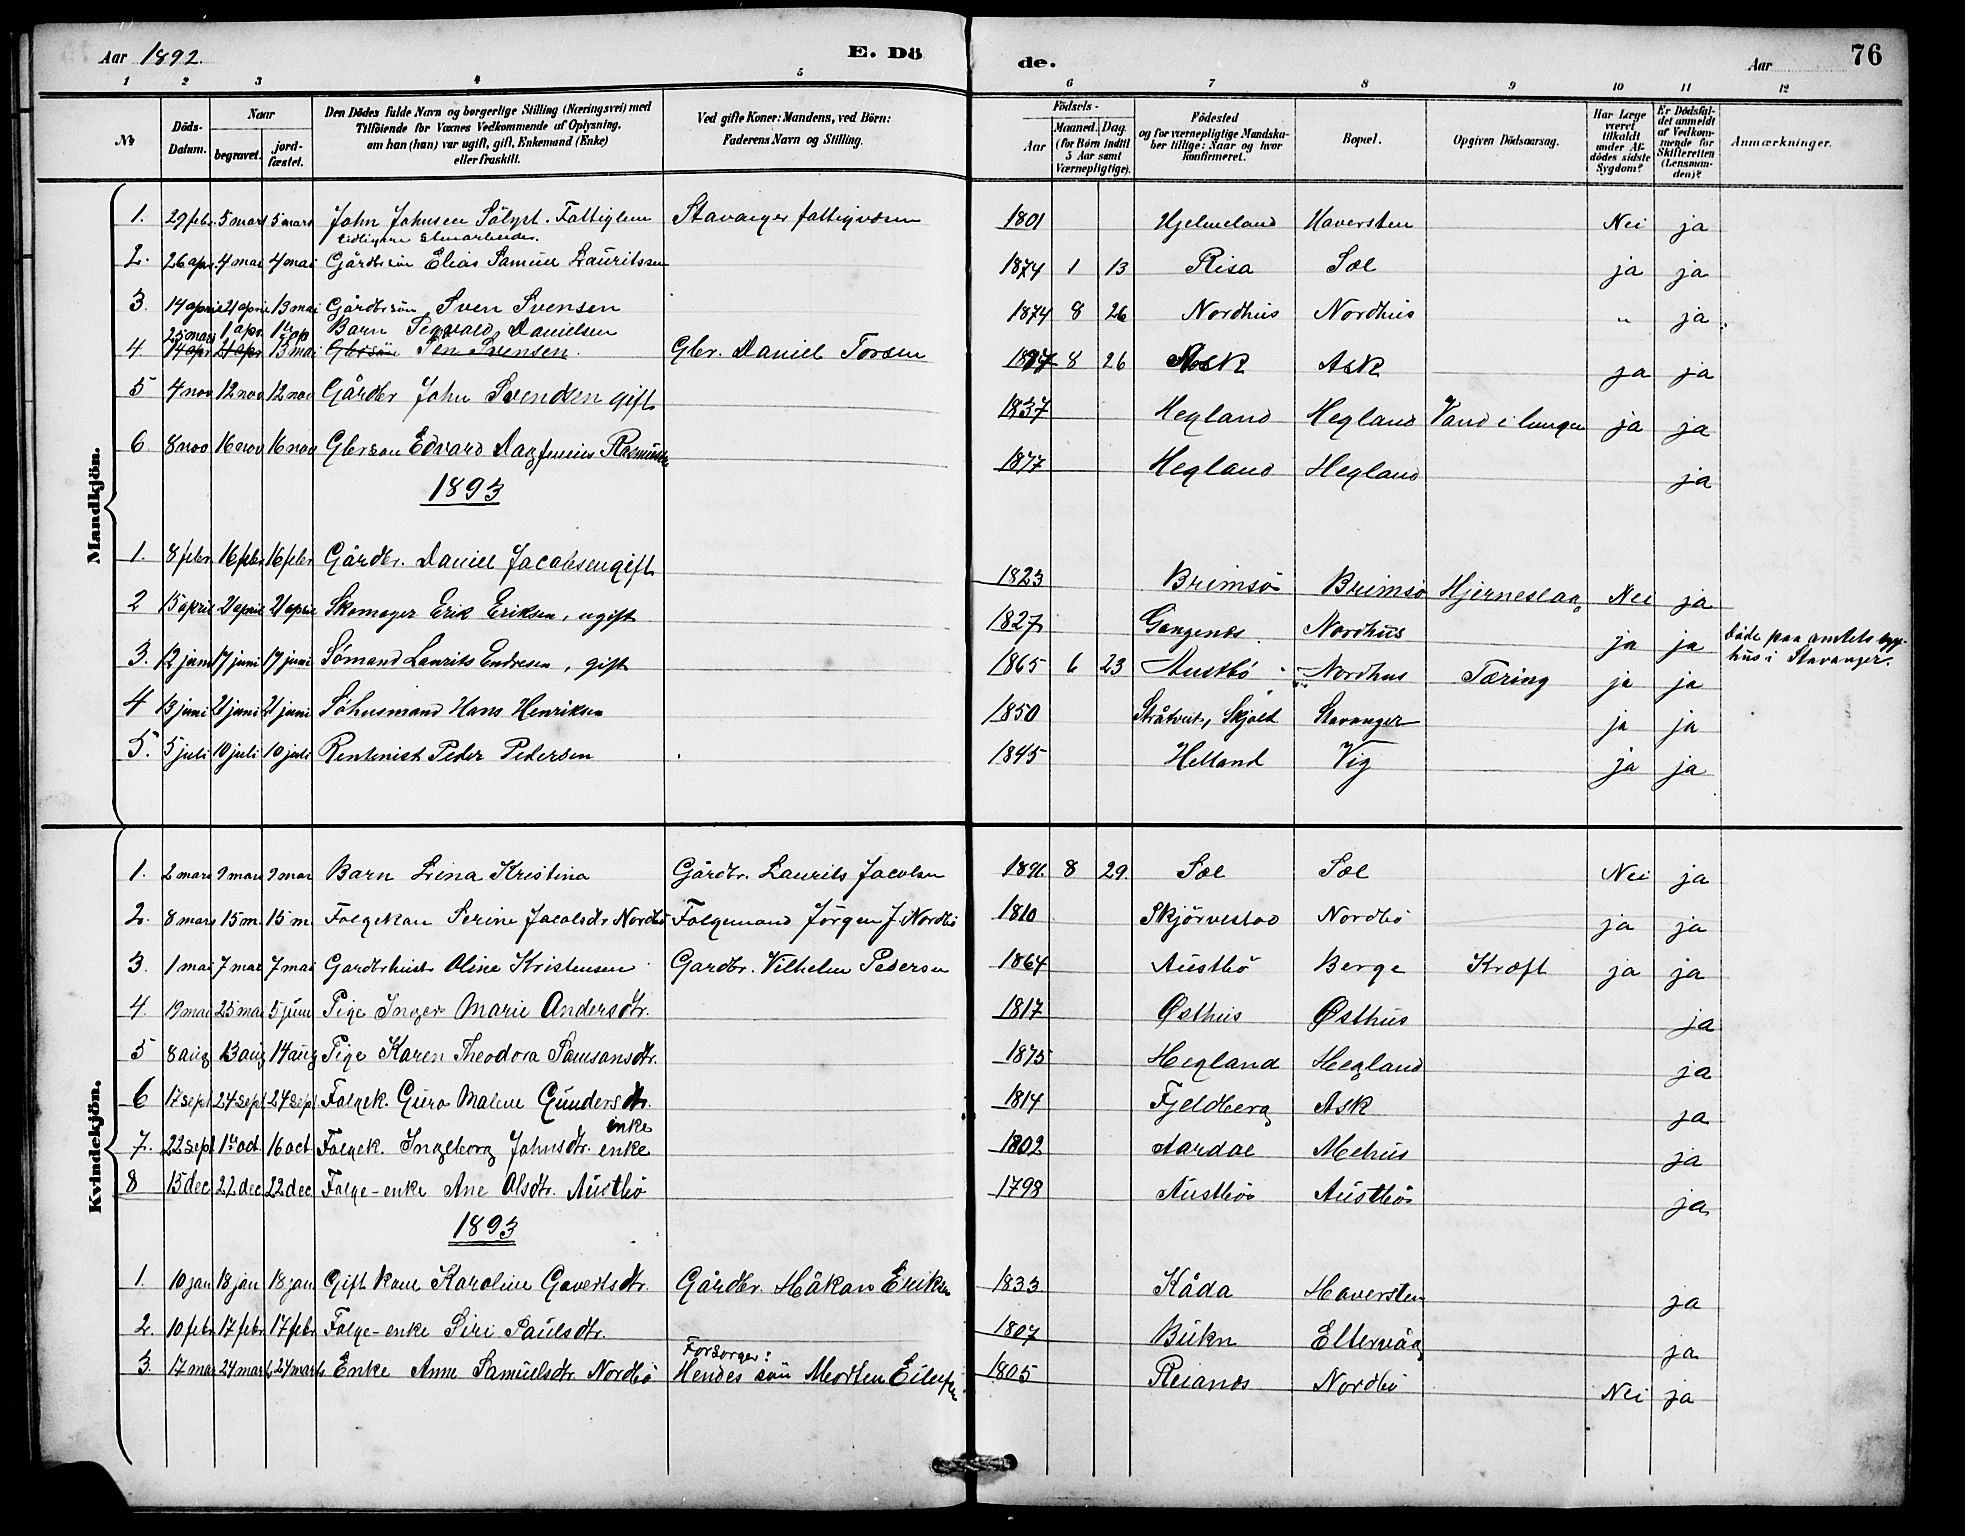 Aar 1892. E. Dö de. Aar 76
1 2 3 4 5 6 7 8 9 10 11 12
No Döds-Datum. Naar begravet. jord-fæstet. Den Dödes fulde Navn og borgerlige Stilling (Næringsvei) med Tilföiende for Voxnes Vedkommende af Oplysning, om han (hun) var ugift, gift, Enkemand (Enke) eller fraskilt. Ved gifte Koner: Mandens, ved Börn: Faderens Navn og Stilling. Födsels- Aar Maaned. Dag. (for Börn indtil 5 Aar samt Værnepligtige). Födested og for værnepligtige Mandskaber tillige: Naar og hvor konfirmeret. Bopæl. Opgiven Dödsaarsag. Har Læge været tilkaldt under Afdödes sidste Sygdom? Er Dödsfaldet anmeldt af Vedkommende for Skifteretten (Lensmanden)? Anmærkninger.
Mandkjön.
1. 29 febr. 5 mars 5 mars John Johnsen Fattiglem Stavanger fattigvæsen 1801 Hjelmeland Haversten Nei ja
tidligere stenarbeider.
2. 26 apr. 4 mai 4 mai Gårdbrsön Elias Samuel Lauritssen 1874 1 13 Risa Sæl ja ja
3. 14 april 21 april 13 mai Gårdbrsön Sven Svensen 1874 8 26 Nordhus Nordhus " ja
25 mars 1 apr. Barn Sigvald Danielsen
4. 14 apr 21 apr 13 mai Gbrsön Sven Svensen. Gbr. Daniel Torsen 8 26 Ask Ask ja ja
5 4 nov 12 nov 12 nov Gårdbr John Svendsen gift 1837 Hegland Hegland Vand i lungen ja ja
6 8 nov 16 nov 16 nov Gbrsön Edvard Dagfinnius Rasmussen 1877 Hegland Hegland ja
1893
1. 8 febr. 16 febr 16 febr Gårdbr. Daniel Jacobsen gift 1823 Brimsö Brimsö Hjerneslag Nei ja
2 15 april 21 april 21 april Skomager Erik Eriksen, ugift 1827 Gangenes Nordhus ja ja döde paa amtets syge-
3. 12 juni 17 juni 17 juni Sömand Laurits Endresen, gift 1865 6 23 Austbö Nordhus Tæring ja ja hus i Stavanger.
4 13 juni 21 juni 21 juni Söhusmand Hans Henriksen 1850 Stråtveit, Skjold Stavanger ja ja
5. 5 juli 10 juli 10 juli Rentenist Peder Pedersen 1845 Helland Vig ja ja
Kvindekjön.
1. 2 mars 9 mars 9 mars Barn Lina Kristina Gårdbr. Laurits Jacobsen 1891. 8 29. Sæl Sæl Nei ja
2. 8 mars 15 m. 15 m. Folgekone Serine Jacobsdtr Nordbö Folgemand Jörgen J. Nordbö 1810 Skjörvestad Nordbö ja ja
3. 1 mai 7 mai 7 mai Gardbrhustr Oline Kristensen Gardbr. Vilhelm Pedersen 1864 Austbö Berge Kræft ja ja
4. 19 mai 25 mai 5 juni Pige Inger Marie Andersdtr. 1817 Østhus Østhus ja
5 8 aug 13 aug 14 aug Pige Karen Theodora Samsonsdtr. 1875 Hegland Hegland ja
6 17 sept 24 sept 24 sept Folgek. Guro Malene Gundersdtr. 1814 Fjeldberg Ask ja
enke
7. 22 sept 1ste oct. 16 oct. Folgek. Ingeborg Johnsdtr. enke 1802 Aardal Mehus ja
8 15 dec 22 dec 22 dec Folge-enke Ane Olsdtr. Austbö 1798 Austbö Austbö ja
1893
1. 10 jan 18 jan 18 jan. Gift kone Karoline Govertsdtr. Gårdbr. Håkon Eriksen 1833. Kåda Haversten ja
2. 10 febr. 17 febr 17 febr Folge-enke Siri Paulsdtr. 1807 Bukn Eltervåg ja
Forsorger:
3. 17 mar 24 mars 24 mars Enke Anne Samuelsdtr. Nordbö Hendes sön Morten 1805 Reianes Nordbö Nei ja